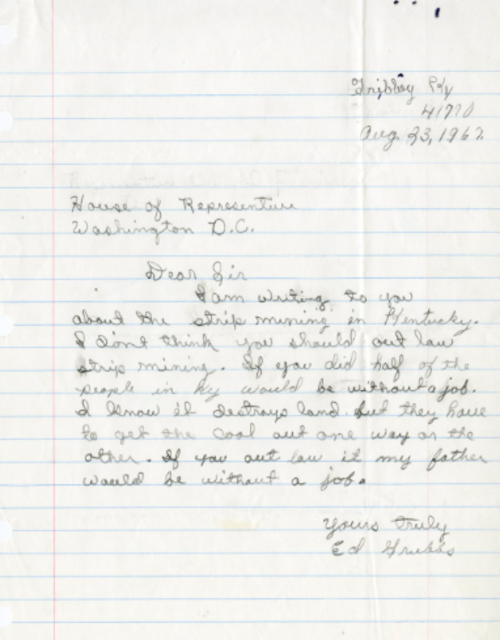 Tribbey Ky
41770
Aug. 23, 1967
House of Representive
Washington D.C.
Dear Sir
I am writing to you
about the strip mining in Kentucky.
I dont think you should out law
strip mining. If you did half of the
people in Ky would be without a job.
I know it destroys land but they have
to get the coal out one way or the
other. If you out law it my father
would be without a job.
Yours truly
Ed Grubbs